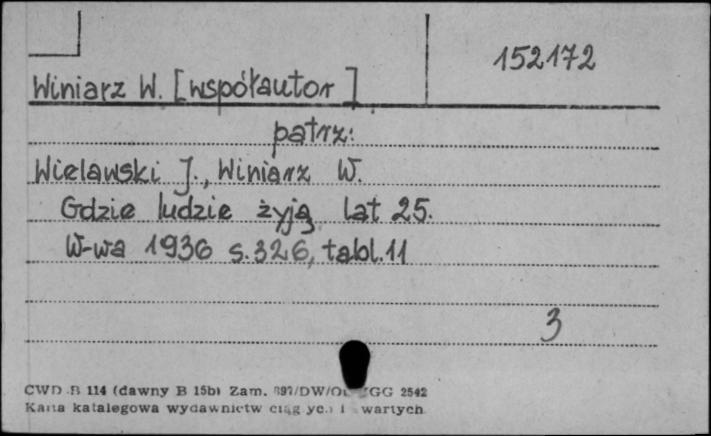 152172
Winiarz W. [współautor]
patrz:
Wielawski J., Winiarz W.
Gdzie ludzie żyją lat 25.
W-wa 1936 s. 326, tabl. 11
3
CWD B 114 (dawny B 15b) Zam. 897/DW/OL GG 2542
Karta katalogowa wydawnictw ciąg i wartych